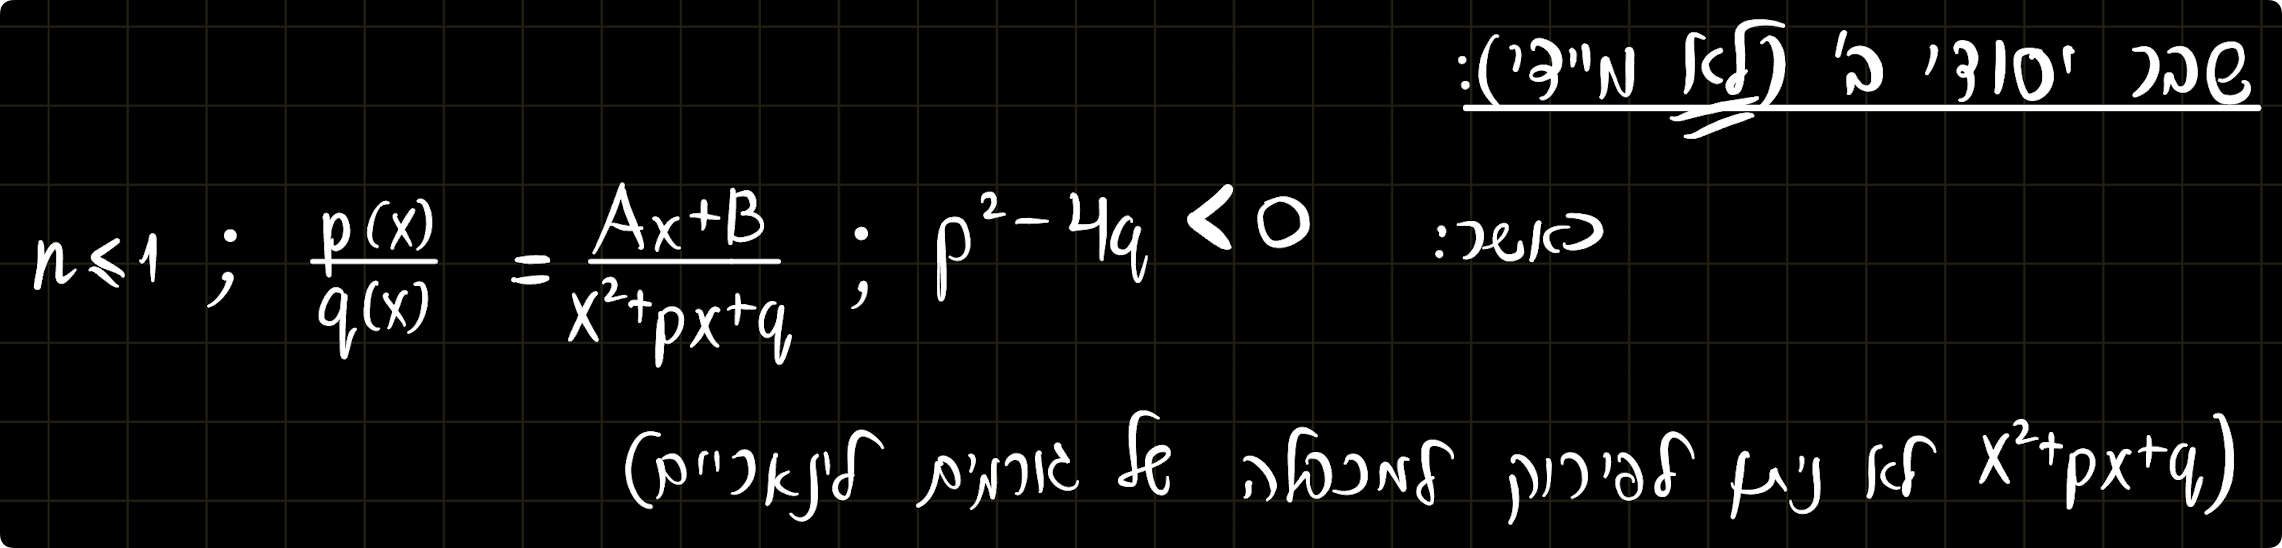 שבר יסודי ב' (לא מיידי):
כאשר: p²-4q < 0 ; p(x)/q(x) = Ax+B/x²+px+q ; n≤1
(x²+px+q לא ניתן לפירוק למכפלה של גורמים לינאריים)